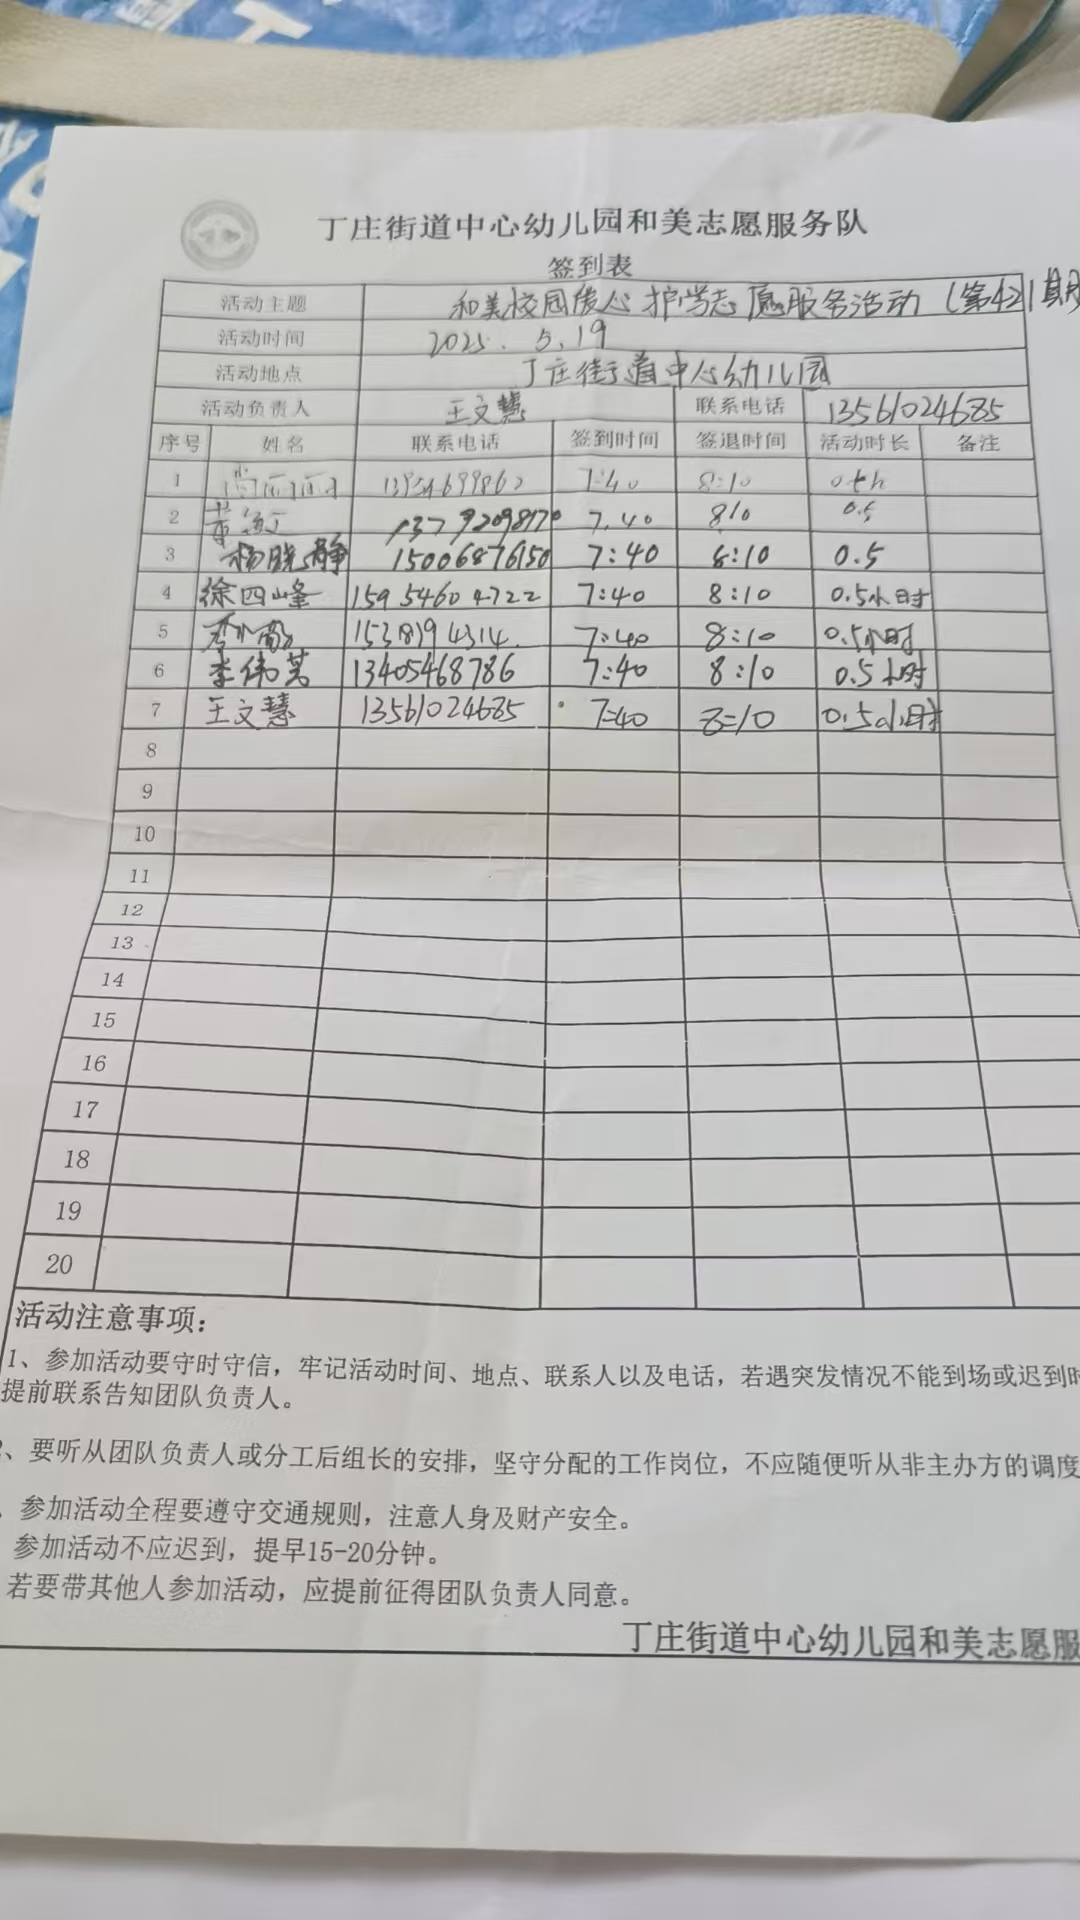 丁庄街道中心幼儿园和美志愿服务队
签到表
活动主题 和美校园爱心护学志愿服务活动(第421期
活动时间 2025.5.19
活动地点 丁庄街道中心幼儿园
活动负责人 王文慧 联系电话 13561024685
序号 姓名 联系电话 签到时间 签退时间 活动时长 备注
1 7:40 8:10
2 7.40 810 0.5
3 杨晓静 15006876150 7:40 8:10 0.5
4 徐四峰 15954604722 7:40 8:10 0.5小时
5 1538194314 7:40 8:10 0.5小时
6 李伟芳 13405468786 7:40 8:10 0.5小时
7 王文慧 13561024685 7:40 8=10 0.5小时
8
9
10
11
12
13
14
15
16
17
18
19
20
活动注意事项:
1、参加活动要守时守信，牢记活动时间、地点、联系人以及电话，若遇突发情况不能到场或迟到时
提前联系告知团队负责人。
、要听从团队负责人或分工后组长的安排，坚守分配的工作岗位，不应随便听从非主办方的调度
、参加活动全程要遵守交通规则，注意人身及财产安全。
参加活动不应迟到，提早15-20分钟。
若要带其他人参加活动，应提前征得团队负责人同意。
丁庄街道中心幼儿园和美志愿服